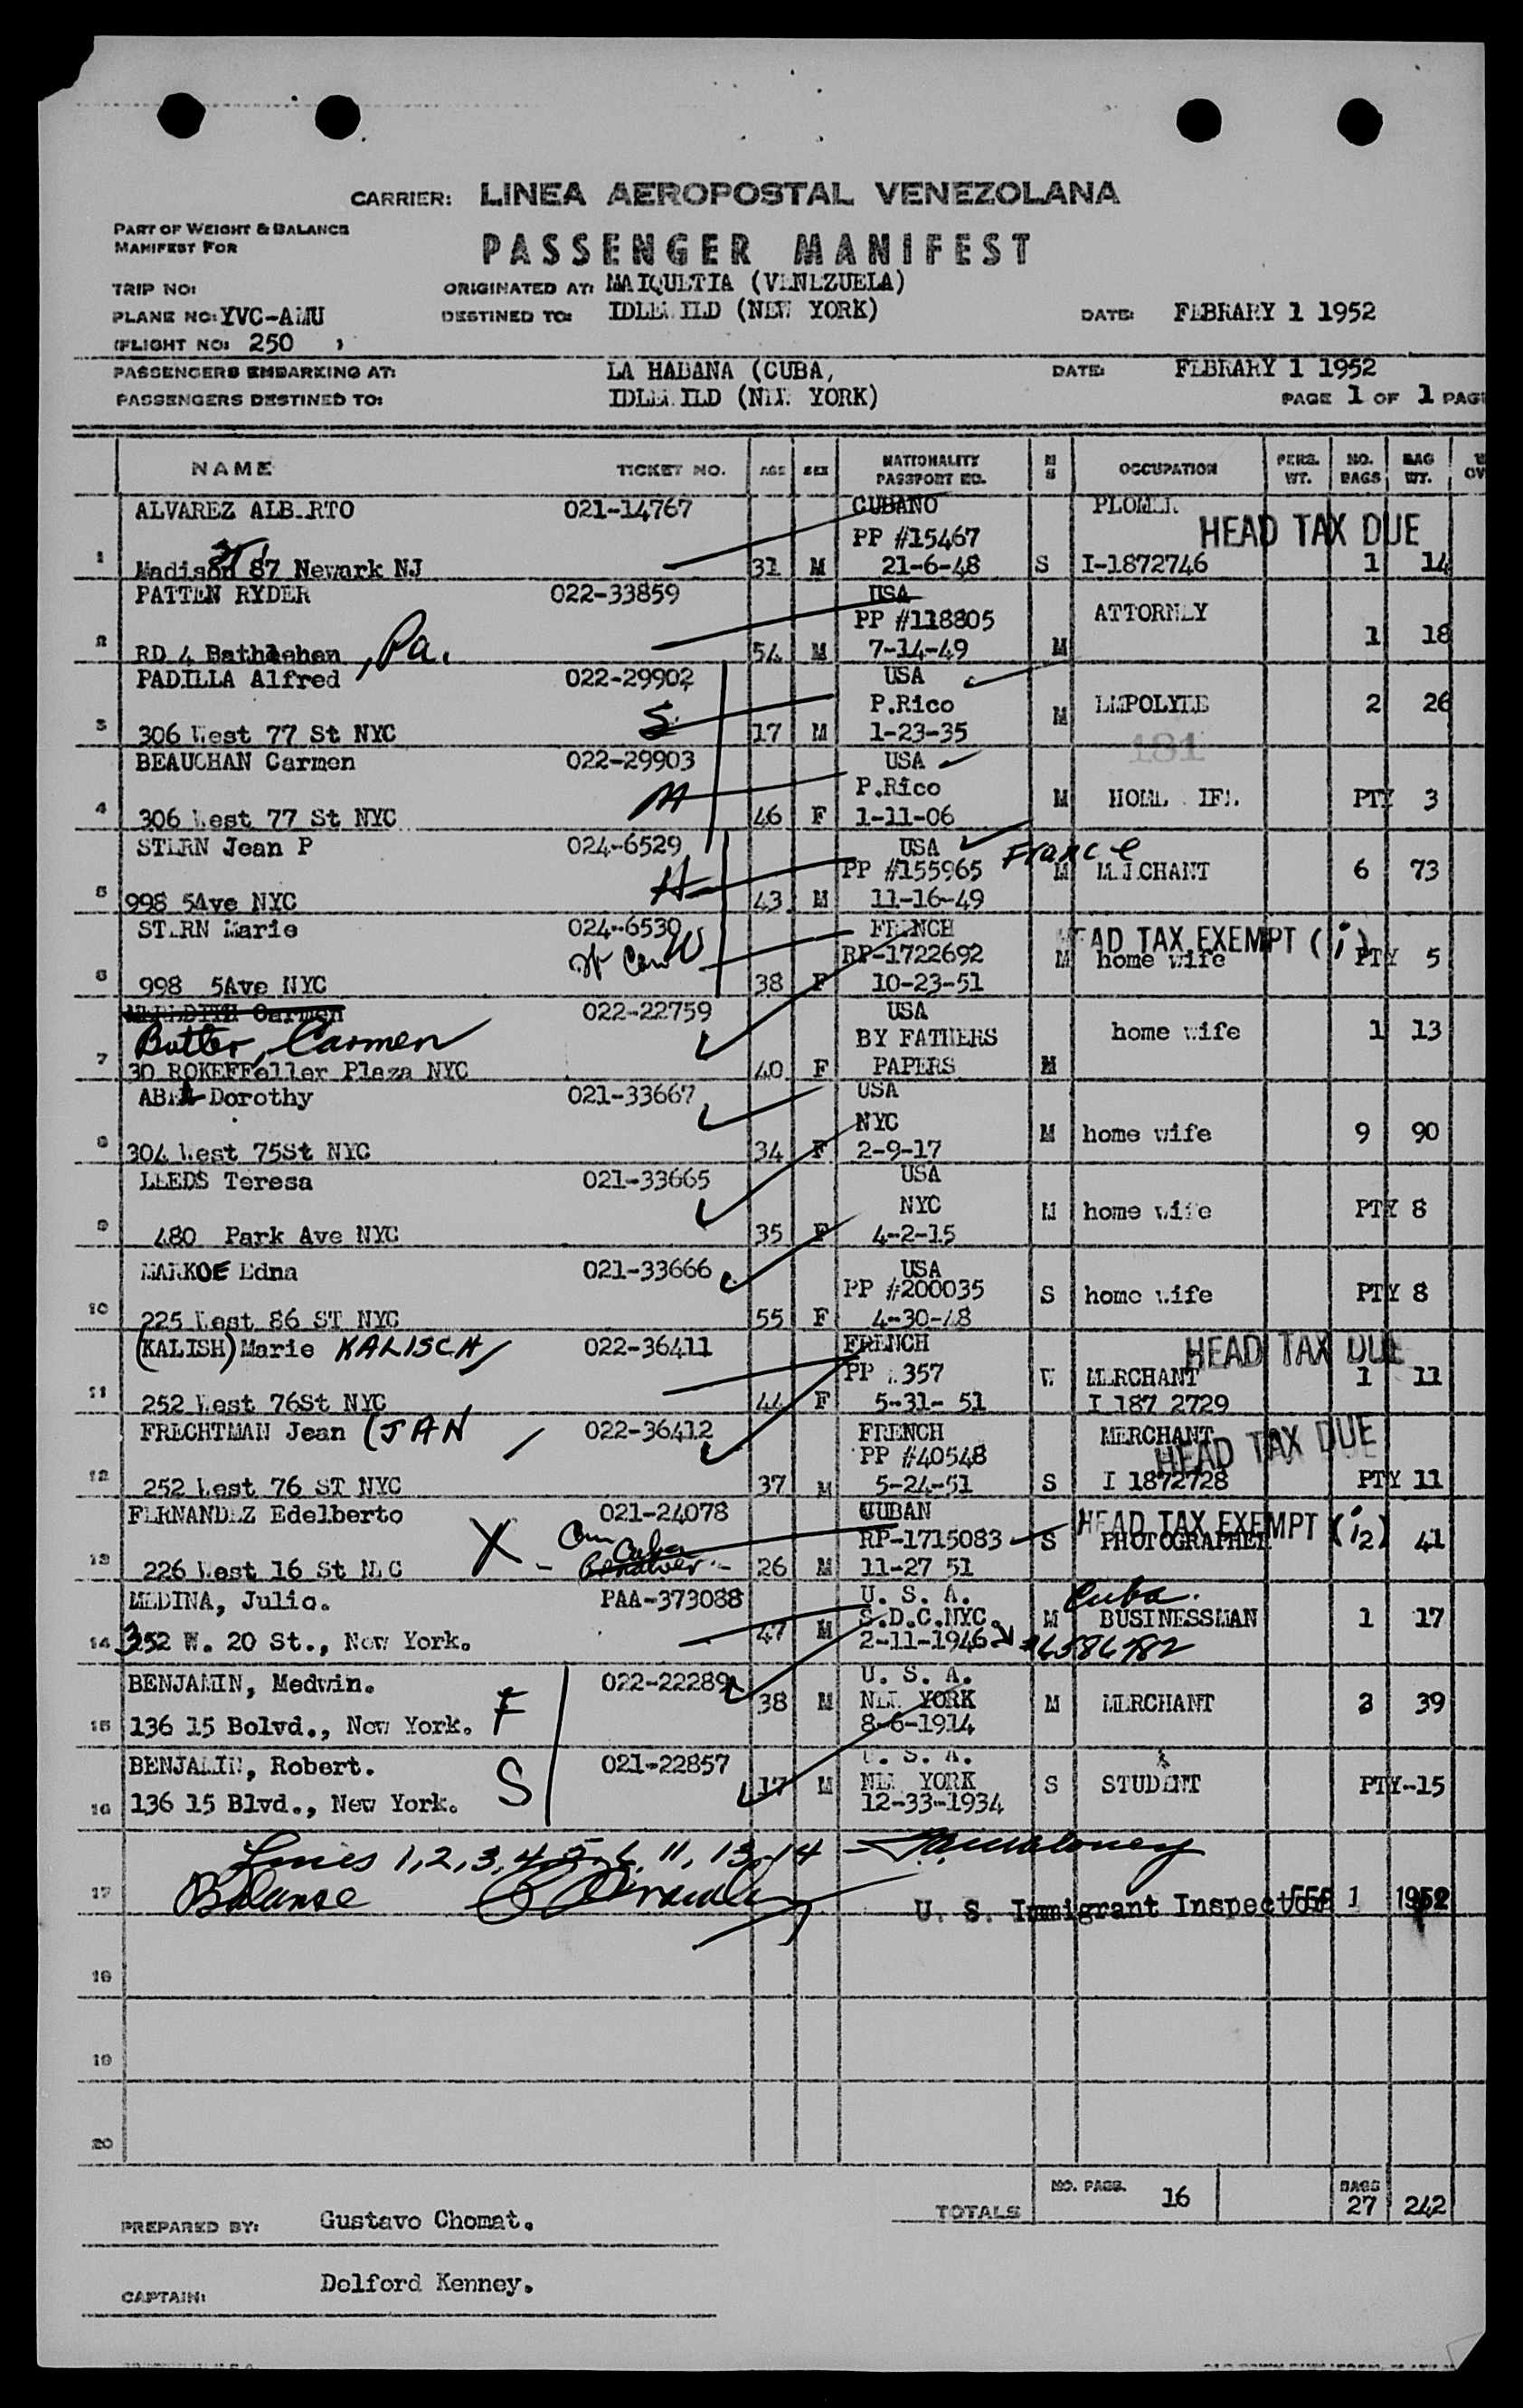 CARRIER: LINEA AEROPOSTAL VENEZOLANA
PART OF WEIGHT & BALANCE
MANIFEST FOR
PASSENGER MANIFEST
TRIP NO:
ORIGINATED AT: MAIQUETIA (VENEZUELA)
PLANE NO: YVC-AMU
DESTINED TO: IDLEWILD (NEW YORK)
DATE: FEBRARY 1 1952
(FLIGHT NO: 250 )
PASSENGERS EMBARKING AT: LA HABANA (CUBA,
DATE: FEBRARY 1 1952
PASSENGERS DESTINED TO: IDLEWILD (NEW YORK)
PAGE 1 OF 1 PAGE
NAME TICKET NO. AGE SEX NATIONALITY PASSPORT NO. M S OCCUPATION PERS. WT. NO. BAGS BAG WT.
ALVAREZ ALBERTO 021-14767 CUBANO PLOMER
PP #15467 HEAD TAX DUE
1 Madison 87 Newark NJ 31 M 21-6-48 S I-1872746 1 14
PATTEN RYDER 022-33859 USA
PP #118805 ATTORNEY
2 RD 4 Bathlehen, Pa. 54 M 7-14-49 M 1 18
PADILLA Alfred 022-29902 USA
S P.Rico M EMPOLYEE 2 26
3 306 West 77 St NYC 17 M 1-23-35
181
BEAUCHAN Carmen 022-29903 USA
M P.Rico M HOME WIFE PTY 3
4 306 West 77 St NYC 46 F 1-11-06
STERN Jean P 024-6529 USA France
H PP #155965 M MERCHANT 6 73
5 998 5Ave NYC 43 M 11-16-49
STERN Marie 024-6530 FRENCH HEAD TAX EXEMPT (i)
W RP-1722692 M home wife PTY 5
6 998 5Ave NYC 38 F 10-23-51
MEREDITH Carmen 022-22759 USA
Butler, Carmen BY FATHERS home wife 1 13
7 30 ROKEFFeller Plaza NYC 40 F PAPERS M
Dorothy 021-33667 USA
NYC M home wife 9 90
8 304 West 75St NYC 34 F 2-9-17
LEEDS Teresa 021-33665 USA
NYC M home wife PTY 8
9 480 Park Ave NYC 35 F 4-2-15
MARKOE Edna 021-33666 USA
PP #200035 S home wife PTY 8
10 225 West 86 ST NYC 55 F 4-30-48
(KALISH) Marie KALISCH 022-36411 FRENCH HEAD TAX DUE
PP 357 W MERCHANT 1 11
11 252 West 76St NYC 44 F 5-31-51 I 187 2729
FRECHTMAN Jean (JAN 022-36412 FRENCH MERCHANT
PP #40548 HEAD TAX DUE
12 252 West 76 ST NYC 37 M 5-24-51 S I 1872728 PTY 11
FERNANDEZ Edelberto 021-24078 CUBAN HEAD TAX EXEMPT (i
X Cuba RP-1715083 S PHOTOGRAPHER 2) 41
13 226 West 16 St NYC 26 M 11-27 51
MEDINA, Julio. PAA-373088 U. S. A. Cuba.
47 M S.D.C.NYC. M BUSINESSMAN 1 17
14 352 W. 20 St., New York. 2-11-1946 #6586782
BENJAMIN, Medwin. 022-22289 U. S. A.
F 38 M NEW YORK M MERCHANT 3 39
15 136 15 Bolvd., New York. 8-6-1914
BENJAMIN, Robert. 021-22857 U. S. A.
S 17 M NEW YORK S STUDENT PTY-15
16 136 15 Blvd., New York. 12-33-1934
Lines 1,2,3,4,5,6, 11, 13, 14
17 Balance
U. S. Immigrant Inspector FEB 1 1952
18
19
20
TOTALS NO. PASS. 16 BAGS 27 242
PREPARED BY: Gustavo Chomat.
CAPTAIN: Dolford Kenney.